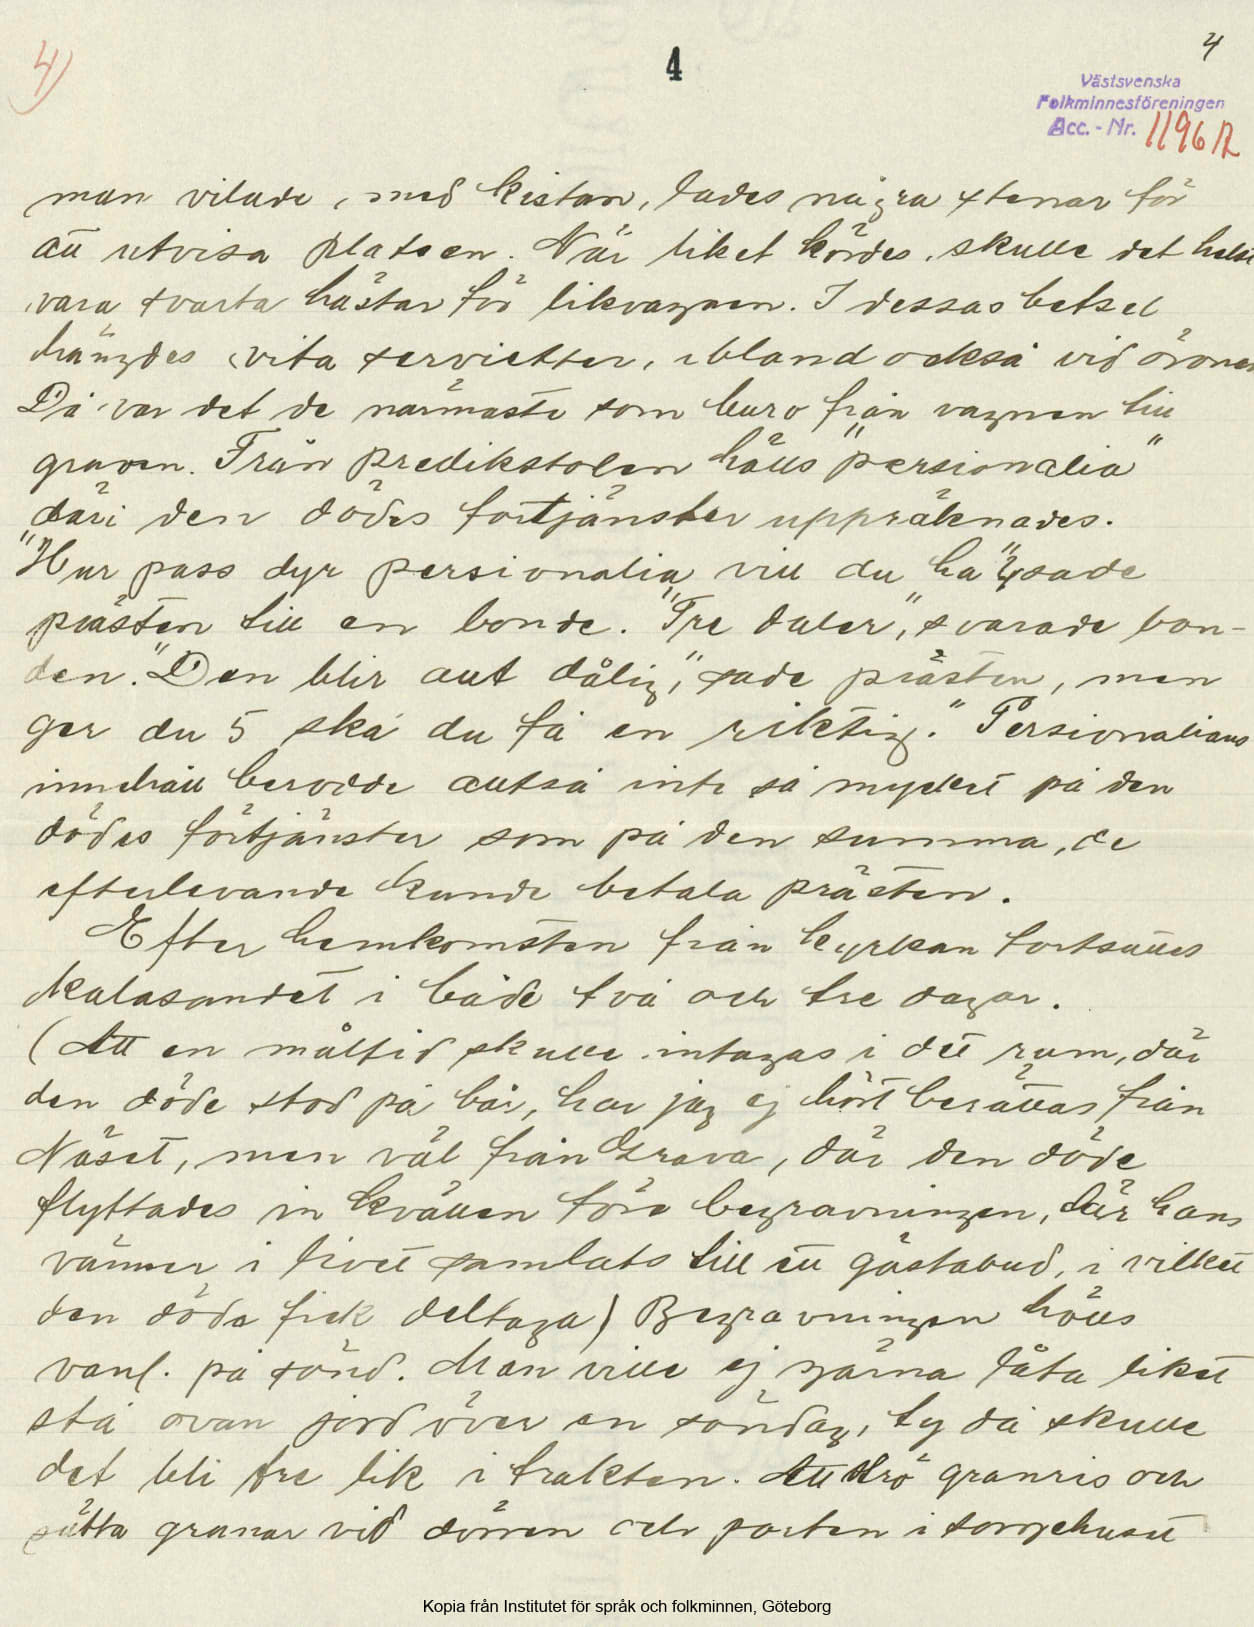 4)
4
4
Västsvenska
Folkminnesföreningen
Acc. - Nr. 1196 12
man vilade, med kistan, lades några stenar för
att utvisa platsen. När liket kördes, skulle det helst
vara svarta hästar för likvagnen. I dessas betsel
hängdes vita servietter, ibland också vid öronen
Då var det de närmaste som buro från vagnen till
graven. Från predikstolen hölls "persionalia"
däri den dödes förtjänster uppräknades.
"Hur pass dyr persionalia vill du ha", sade
prästen till en bonde. "Tre daler", svarade bon-
den. "Den blir allt dålig", sade prästen, men
ger du 5 ska du få en riktig." Persionalians
innehåll berodde alltså inte så mycket på den
dödes förtjänster som på den summa, de
efterlevande kunde betala prästen.
Efter hemkomsten från kyrkan fortsattes
kalasandet i både två och tre dagar.
(Att en måltid skulle intagas i det rum, där
den döde stod på bår, har jag ej hört berättas från
Näset, men väl från Grava, där den döde
flyttades in kvällen före begravningen, där hans
vänner i livet samlats till ett gästabud, i vilket
den döda fick deltaga) Begravningen hölls
vanl. på sönd. Man ville ej gärna låta liket
stå ovan jord över en söndag, ty då skulle
det bli tre lik i trakten. Att strö granris och
sätta granar vid dörren och porten i sorgehuset
Kopia från Institutet för språk och folkminnen, Göteborg